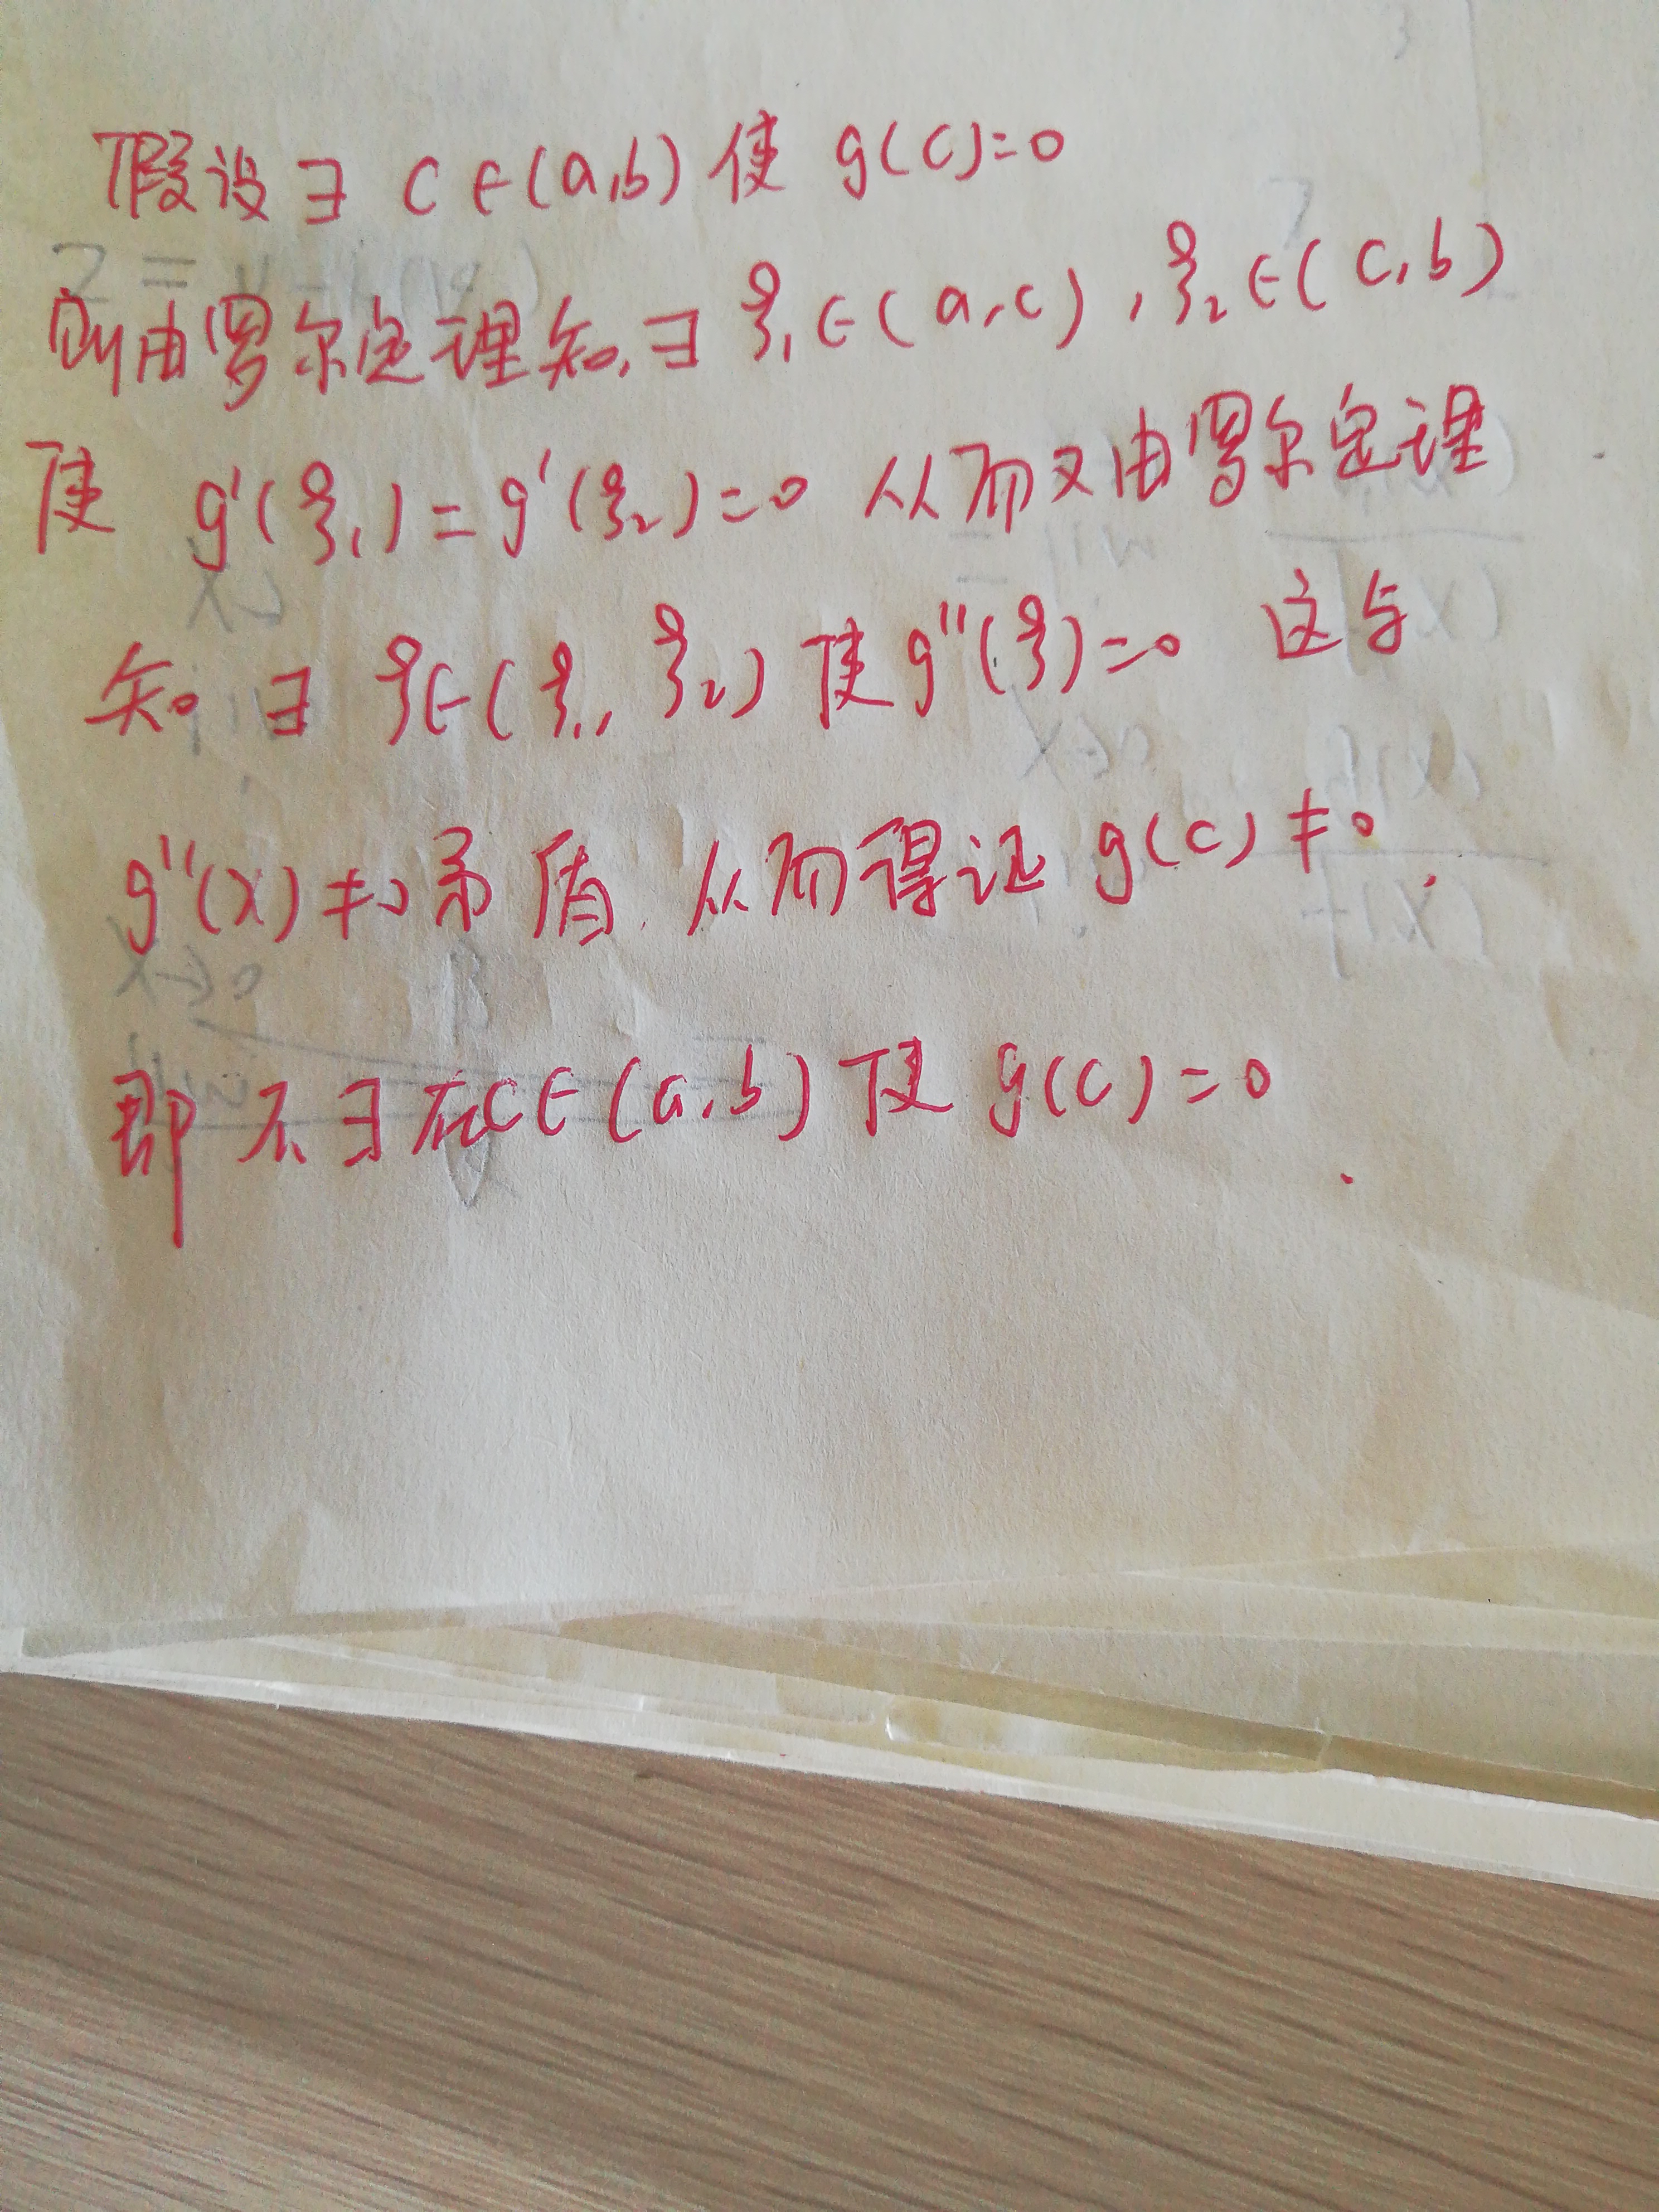 假设∃ c∈(a,b) 使 g(c)=0
则由罗尔定理知,∃ ξ₁∈(a,c),ξ₂∈(c,b)
使 g'(ξ₁)=g'(ξ₂)=0 从而又由罗尔定理
知 ∃ ξ∈(ξ₁,ξ₂) 使 g''(ξ)=0 这与
g''(x)≠0矛盾.从而得证 g(c)≠0.
即不∃在c∈(a,b)使 g(c)=0.